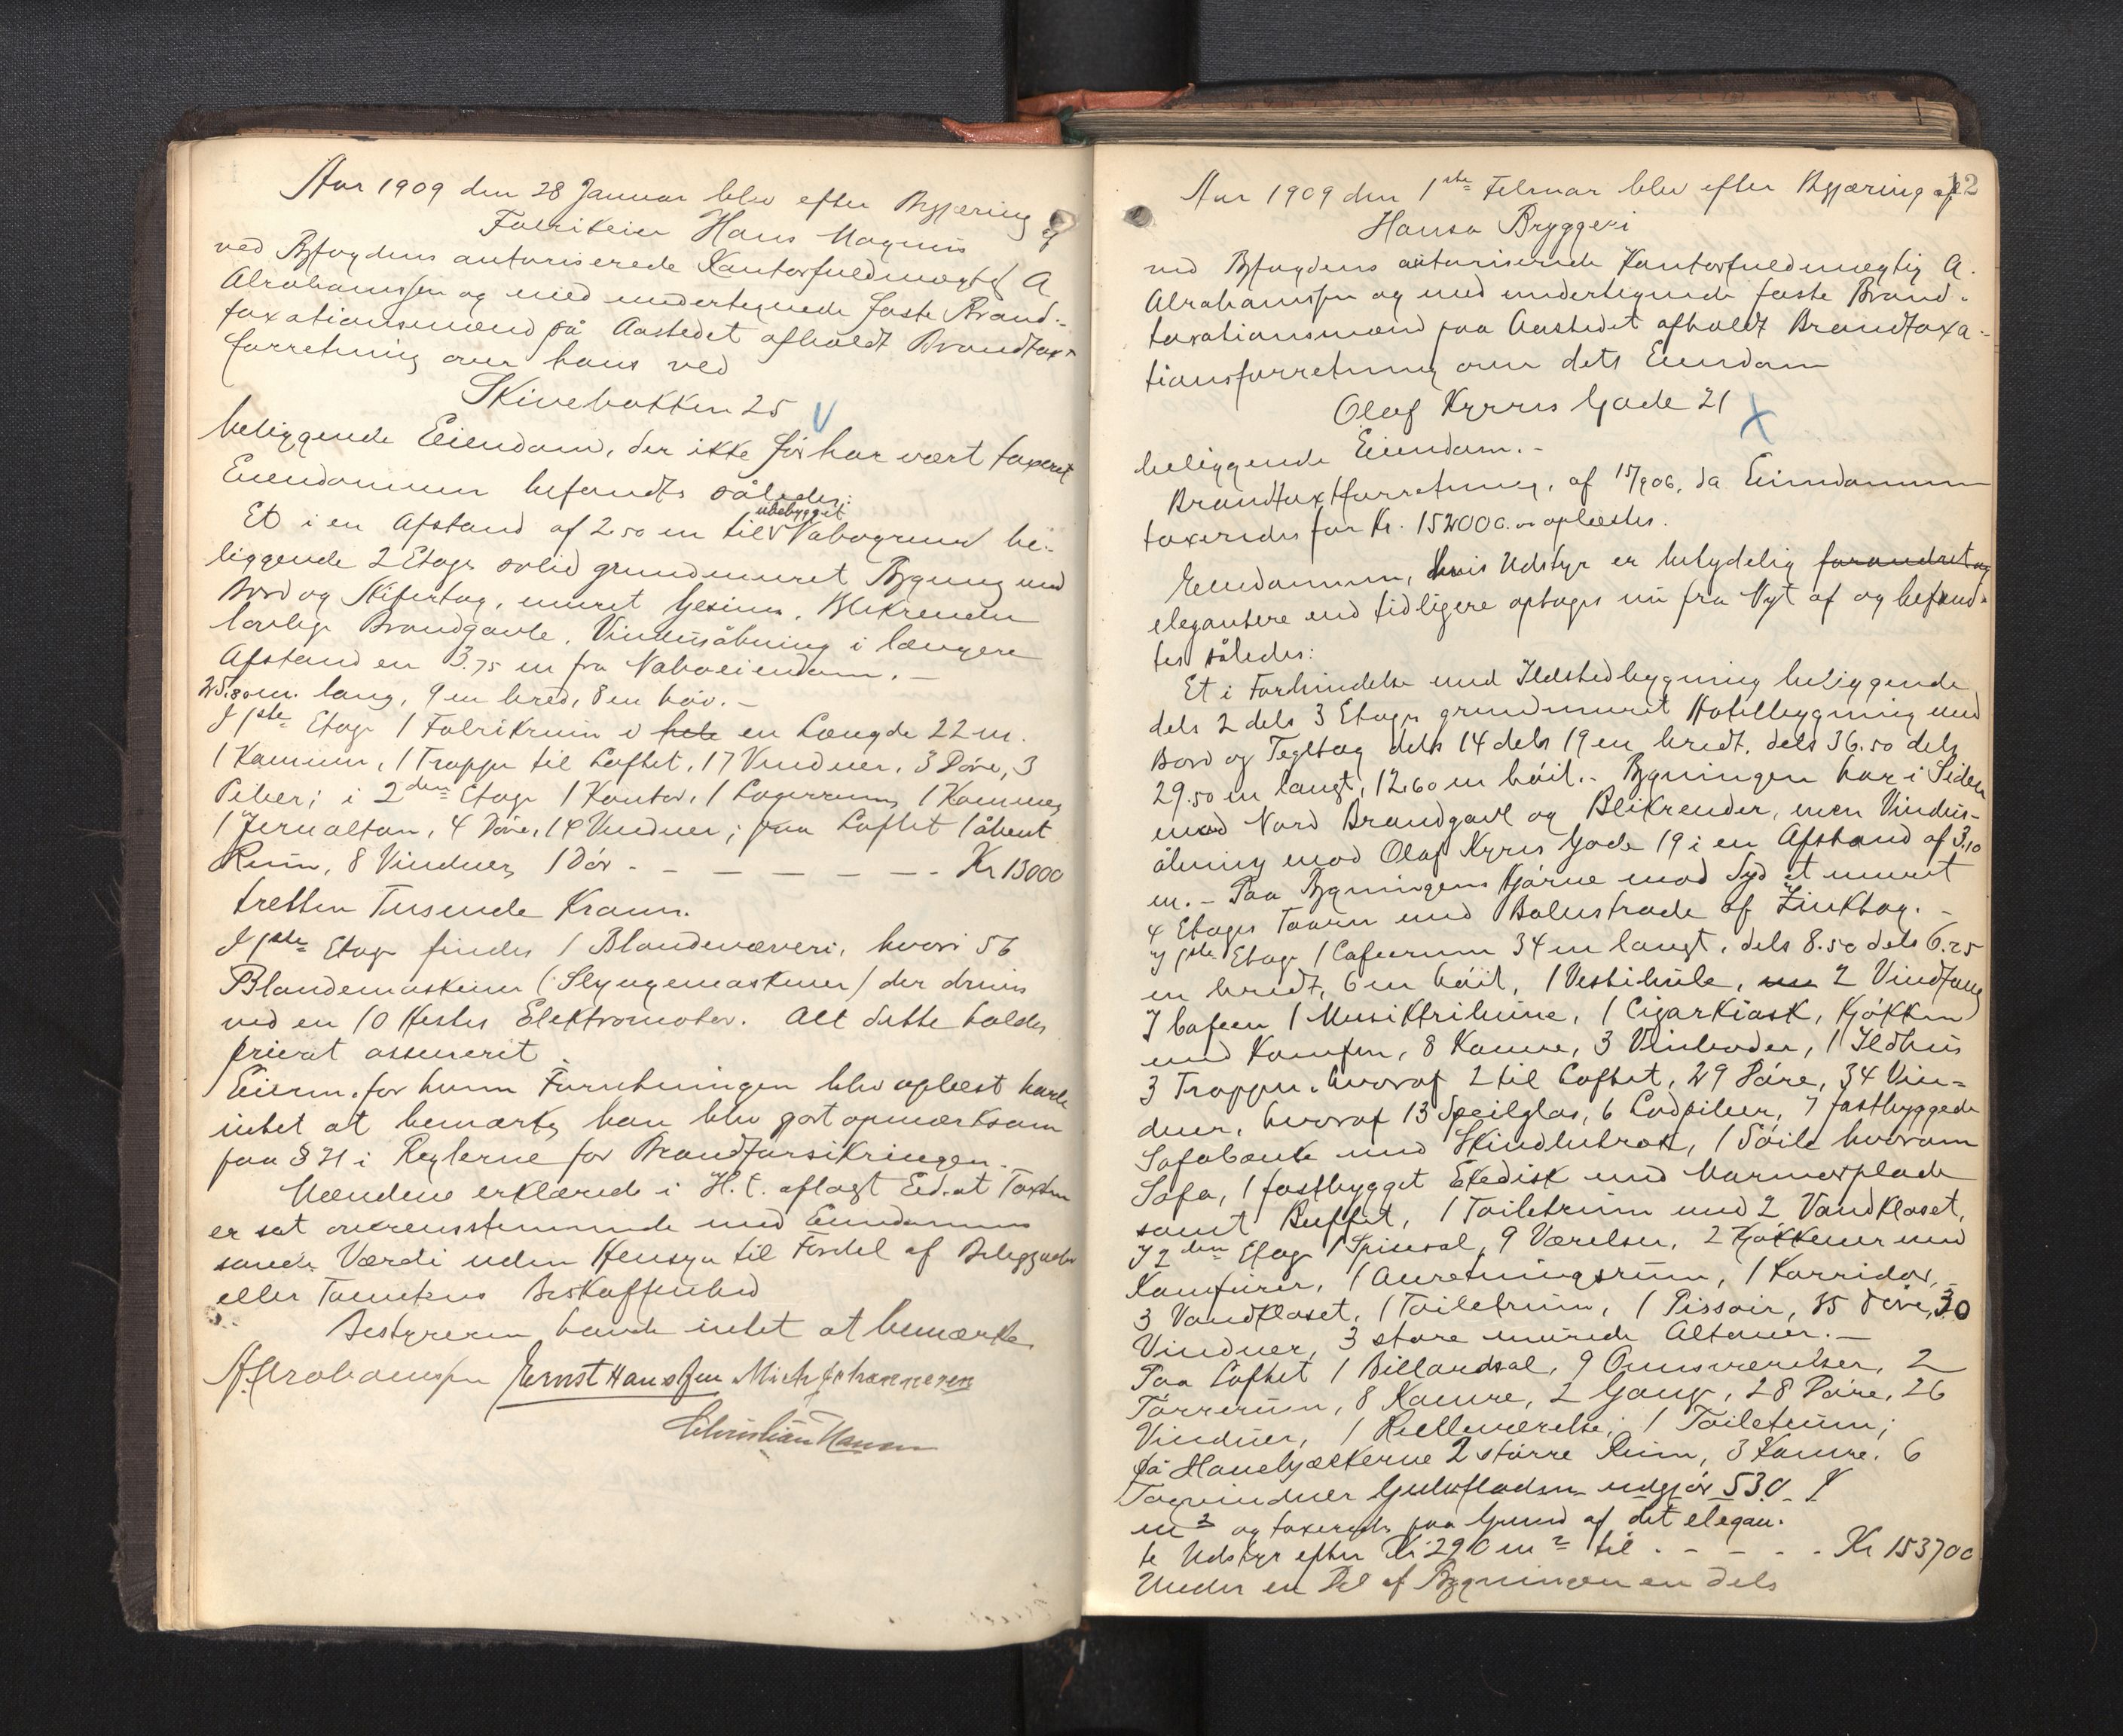 Aar 1909 den 28 Januar blev efter Begjæring af
Fabrikeier Hans Magnus
ved Byfogdens autoriserede Kontorfuldmægtig A
Abrahamssen og med undertegnede faste Brand-
taxationsmænd på Aastedet afholdt Brandtaxt
forretning over hans ved
Skivebakken 25
beliggende Eiendom, der ikke før har vært taxeret
Eiendommen befandtes således:
ubebygget
Et i en Afstand af 2.50 m til Nabogrund be-
liggende 2 Etages solid grundmuret Bygning med
Bord og Skifertag, muret Gesims, Blikrender
lovlige Brandgavle, Vinduesåbning i længere
Afstand en 3.75 m fra Naboeiendom. -
25.80 m. lang, 9 m bred, 8 m høi. -
I 1ste Etage 1 Fabrikrum i hele en Længde 22 m.
1 Kammer, 1 Trappe til Loftet, 17 Vinduer, 3 Døre, 3
Piber; i 2den Etage 1 Kontor, 1 Lagerrum, 1 Kammer,
1 Jernaltan, 4 Døre, 14 Vinduer; paa Loftet 1 åbent
Rum, 8 Vinduer, 1 Dør - - - - - - - Kr 13000
tretten Tusende Kroner.
I 1ste Etage findes 1 Blondevæveri, hvori 56
Blondemaskiner (: Slyngemaskiner) der drives
ved en 10 Hestes Elektromotor. Alt dette holdes
privat assurerit.
Eieren for hvem Forretningen blev oplæst havde
intet at bemærke, han blev gjort opmærksom
paa § 21 i Reglerne for Brandforsikringen.
Mændene erklærede i H. t. aflagt Ed, at Taxten
er sat overensstemmende med Eiendommens
sande Værdi uden Hensyn til Fordel af Beliggenhed
eller Tomtens Beskaffenhed
Bestyreren havde intet at bemærke.
A. Abrahamssen Ernst Hanssen Mich Johannesen
Christian Hansen
12
Aar 1909 den 1ste Februar blev efter Begjæring af
Hansa Bryggeri
ved Byfogdens autoriserede Kontorfuldmægtig A.
Abrahamssen og med undertegnede faste Brand-
taxationsmænd paa Aastedet afholdt Brandtaxa-
tionsforretning over dets Eiendom
Olaf Kyrres Gade 21
beliggende Eiendom. -
Brandtaxtforretning, af 15/9 06, da Eiendommen
taxeredes for Kr. 152000.00 oplæstes.
Eiendommen, hvis Udstyr er betydelig forandret og
elegantere end tidligere optages nu fra Nyt af og befand-
tes således:
Et i Forbindelse med Ildstedbygning beliggende
dels 2 dels 3 Etages grundmuret Hotelbygning med
Bord og Tegltag dels 14 dels 19 m bredt, dels 36.50 dels
29.50 m langt, 12.60 m høit. - Bygningen har i Siden
mod Nord Brandgavl og Blikrender, men Vindus-
åbning mod Olaf Kyrres Gade 19 i en Afstand af 3.10
m. - Paa Bygningens Hjørne mod Syd et muret
4 Etages Taarn med Balustrade af Zinktag. -
I 1ste Etage 1 Cafeerum 34 m langt, dels 8.50 dels 6.25
m bredt, 6 m høit, 1 Vestibule, 2 Vindfang
I Cafeen 1 Musiktribune, 1 Cigarkiosk, Kjøkken
med Komfur, 8 Kamre, 3 Vinboder, 1 Ildhus
3 Trapper, hvoraf 2 til Loftet, 29 Døre, 34 Vin-
duer, hvoraf 13 Speilglas, 6 Lodpiber, 7 fastbyggede
Sofabænke med Skindbetræk, 1 Søile hvorom
Sofa, 1 fastbygget Exedisk med Marmorplade
samt Buffet, 1 Toiletrum med 2 Vandkloset,
I 2den Etage 1 Spisesal, 9 Værelser, 2 Kjøkkener med
Komfurer, 1 Anretningsrum, 1 Korridor,
3 Vandkloset, 1 Toiletrum, 1 Pissoir, 35 Døre, 30
Vinduer, 3 store murede Altaner. -
Paa Loftet 1 Billardsal, 9 Ovnsværelser, 2
Tørrerum, 8 Kamre, 2 Gange, 28 Døre, 26
Vinduer, 1 Rulleværelse, 1 Toiletrum;
På Hanebjælkerne 2 større Rum, 3 Kamre, 6
Tagvinduer Gulvfladen udgjør 530
m² og taxeredes paa Grund af det elegan-
te Udstyr efter Kr 290 m² til - - - - Kr 153700
Under en Del af Bygningen en dels